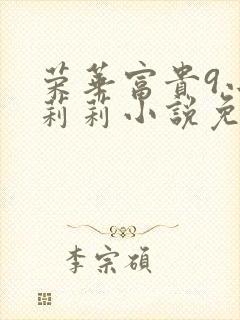 荣華富貴9
莉莉小説免
李宗碩